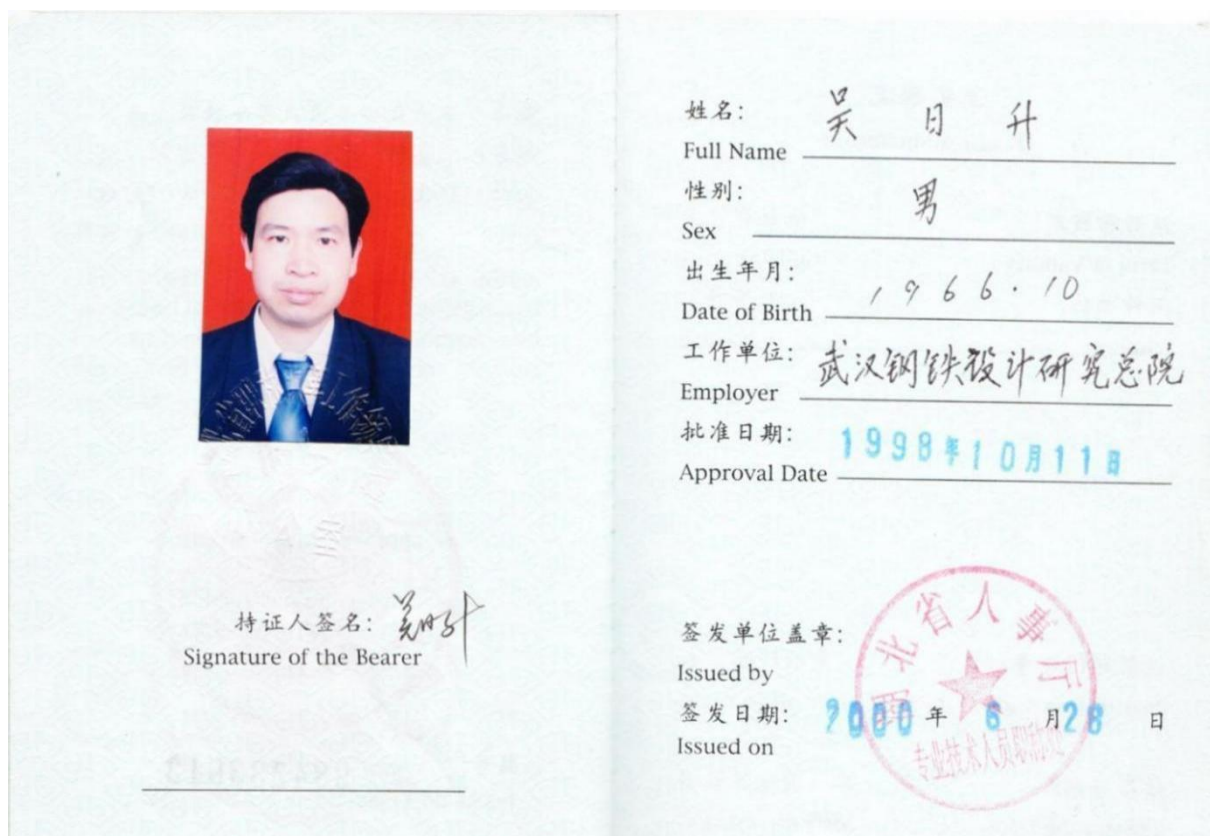 持证人签名：
Signature of the Bearer
姓名： 吴日升
Full Name
性别： 男
Sex
出生年月： 1966.10
Date of Birth
工作单位： 武汉钢铁设计研究总院
Employer
批准日期： 1998年10月11日
Approval Date
签发单位盖章：
Issued by
湖北省人事厅
签发日期： 2000年6月28日
Issued on
专业技术人员职称